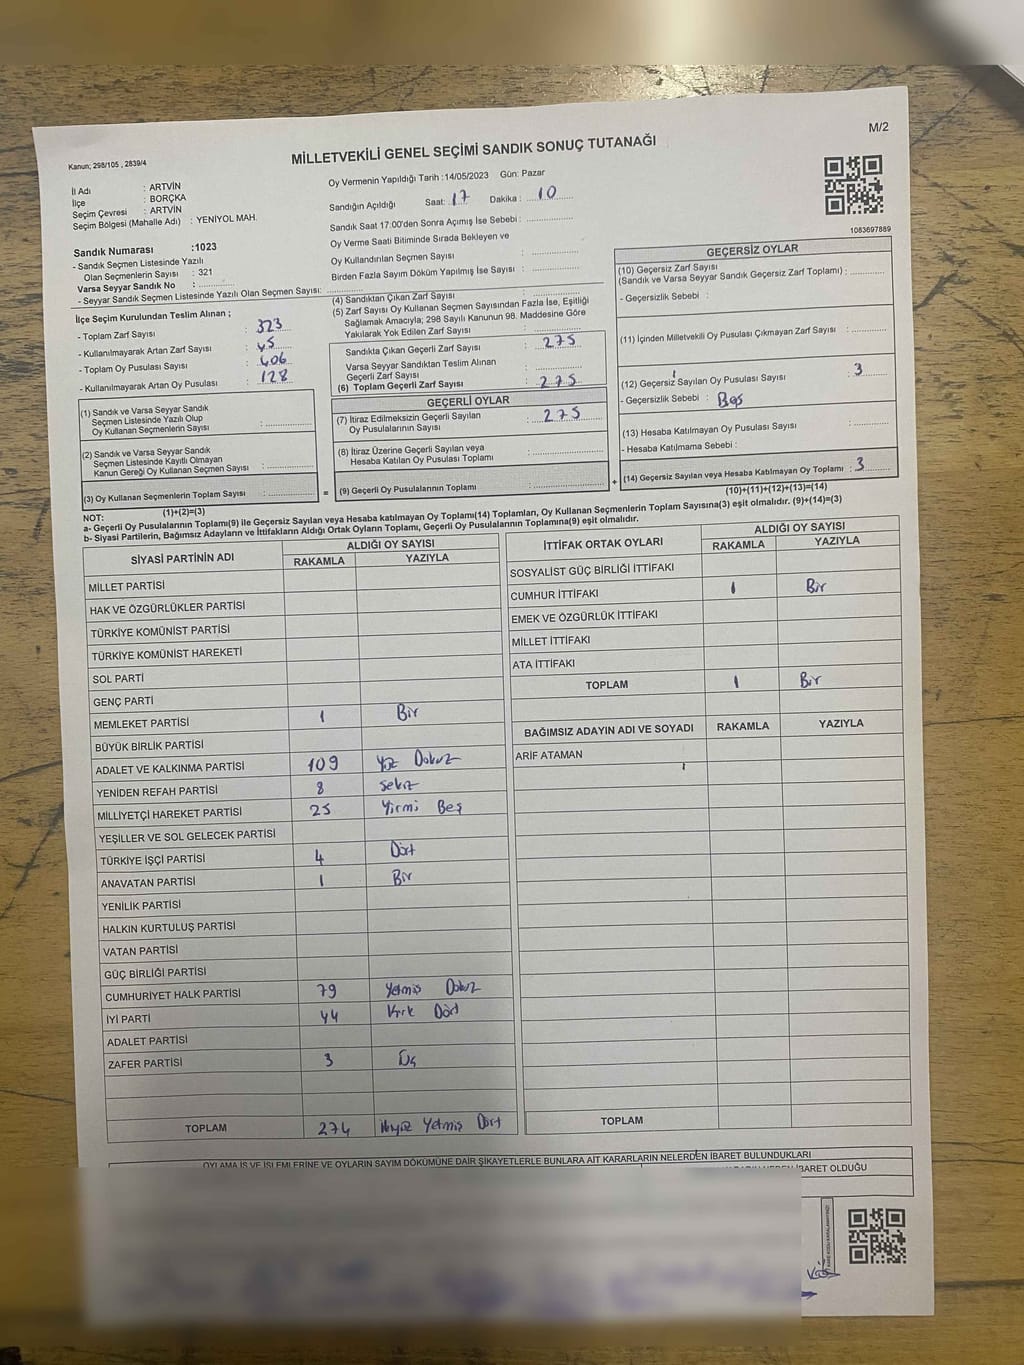 M/2
Kanun; 298/105 , 2839/4
MİLLETVEKİLİ GENEL SEÇİMİ SANDIK SONUÇ TUTANAĞI
İl Adı : ARTVİN
İlçe : BORÇKA
Seçim Çevresi : ARTVİN
Seçim Bölgesi (Mahalle Adı) : YENİYOL MAH.
Oy Vermenin Yapıldığı Tarih :14/05/2023 Gün: Pazar
Sandığın Açıldığı Saat: 17 Dakika : 10
Sandık Saat 17:00'den Sonra Açımış İse Sebebi :
Oy Verme Saati Bitiminde Sırada Bekleyen ve
Oy Kullandırılan Seçmen Sayısı :
Birden Fazla Sayım Döküm Yapılmış İse Sayısı :
1083697889
Sandık Numarası :1023
- Sandık Seçmen Listesinde Yazılı
Olan Seçmenlerin Sayısı : 321
Varsa Seyyar Sandık No :
- Seyyar Sandık Seçmen Listesinde Yazılı Olan Seçmen Sayısı:
İlçe Seçim Kurulundan Teslim Alınan ;
- Toplam Zarf Sayısı : 323
- Kullanılmayarak Artan Zarf Sayısı : 45
- Toplam Oy Pusulası Sayısı : 406
- Kullanılmayarak Artan Oy Pusulası : 128
(1) Sandık ve Varsa Seyyar Sandık
Seçmen Listesinde Yazılı Olup
Oy Kullanan Seçmenlerin Sayısı :
(2) Sandık ve Varsa Seyyar Sandık
Seçmen Listesinde Kayıtlı Olmayan
Kanun Gereği Oy Kullanan Seçmen Sayısı :
(3) Oy Kullanan Seçmenlerin Toplam Sayısı :
(1)+(2)=(3)
(4) Sandıktan Çıkan Zarf Sayısı :
(5) Zarf Sayısı Oy Kullanan Seçmen Sayısından Fazla İse, Eşitliği
Sağlamak Amacıyla; 298 Sayılı Kanunun 98. Maddesine Göre
Yakılarak Yok Edilen Zarf Sayısı :
Sandıkta Çıkan Geçerli Zarf Sayısı : 275
Varsa Seyyar Sandıktan Teslim Alınan
Geçerli Zarf Sayısı :
(6) Toplam Geçerli Zarf Sayısı : 275
GEÇERLİ OYLAR
(7) İtiraz Edilmeksizin Geçerli Sayılan
Oy Pusulalarının Sayısı : 275
(8) İtiraz Üzerine Geçerli Sayılan veya
Hesaba Katılan Oy Pusulası Toplamı :
= (9) Geçerli Oy Pusulalarının Toplamı : +
GEÇERSİZ OYLAR
(10) Geçersiz Zarf Sayısı
(Sandık ve Varsa Seyyar Sandık Geçersiz Zarf Toplamı) :
- Geçersizlik Sebebi :
(11) İçinden Milletvekili Oy Pusulası Çıkmayan Zarf Sayısı :
(12) Geçersiz Sayılan Oy Pusulası Sayısı : 3
- Geçersizlik Sebebi : Boş
(13) Hesaba Katılmayan Oy Pusulası Sayısı :
- Hesaba Katılmama Sebebi :
(14) Geçersiz Sayılan veya Hesaba Katılmayan Oy Toplamı : 3
(10)+(11)+(12)+(13)=(14)
NOT:
a- Geçerli Oy Pusulalarının Toplamı(9) ile Geçersiz Sayılan veya Hesaba katılmayan Oy Toplamı(14) Toplamları, Oy Kullanan Seçmenlerin Toplam Sayısına(3) eşit olmalıdır. (9)+(14)=(3)
b- Siyasi Partilerin, Bağımsız Adayların ve İttifakların Aldığı Ortak Oyların Toplamı, Geçerli Oy Pusulalarının Toplamına(9) eşit olmalıdır.
SİYASİ PARTİNİN ADI ALDIĞI OY SAYISI
RAKAMLA YAZIYLA
MİLLET PARTİSİ
HAK VE ÖZGÜRLÜKLER PARTİSİ
TÜRKİYE KOMÜNİST PARTİSİ
TÜRKİYE KOMÜNİST HAREKETİ
SOL PARTİ
GENÇ PARTİ
MEMLEKET PARTİSİ 1 Bir
BÜYÜK BİRLİK PARTİSİ
ADALET VE KALKINMA PARTİSİ 109 Yüz Dokuz
YENİDEN REFAH PARTİSİ 8 Sekiz
MİLLİYETÇİ HAREKET PARTİSİ 25 Yirmi Beş
YEŞİLLER VE SOL GELECEK PARTİSİ
TÜRKİYE İŞÇİ PARTİSİ 4 Dört
ANAVATAN PARTİSİ 1 Bir
YENİLİK PARTİSİ
HALKIN KURTULUŞ PARTİSİ
VATAN PARTİSİ
GÜÇ BİRLİĞİ PARTİSİ
CUMHURİYET HALK PARTİSİ 79 Yetmiş Dokuz
İYİ PARTİ 44 Kırk Dört
ADALET PARTİSİ
ZAFER PARTİSİ 3 Üç
TOPLAM 274 İkiyüz Yetmiş Dört
İTTİFAK ORTAK OYLARI ALDIĞI OY SAYISI
RAKAMLA YAZIYLA
SOSYALİST GÜÇ BİRLİĞİ İTTİFAKI
CUMHUR İTTİFAKI 1 Bir
EMEK VE ÖZGÜRLÜK İTTİFAKI
MİLLET İTTİFAKI
ATA İTTİFAKI
TOPLAM 1 Bir
BAĞIMSIZ ADAYIN ADI VE SOYADI RAKAMLA YAZIYLA
ARİF ATAMAN
TOPLAM
OYLAMA İŞ VE İŞLEMLERİNE VE OYLARIN SAYIM DÖKÜMÜNE DAİR ŞİKAYETLERLE BUNLARA AİT KARARLARIN NELERDEN İBARET BULUNDUKLARI
İBARET OLDUĞU